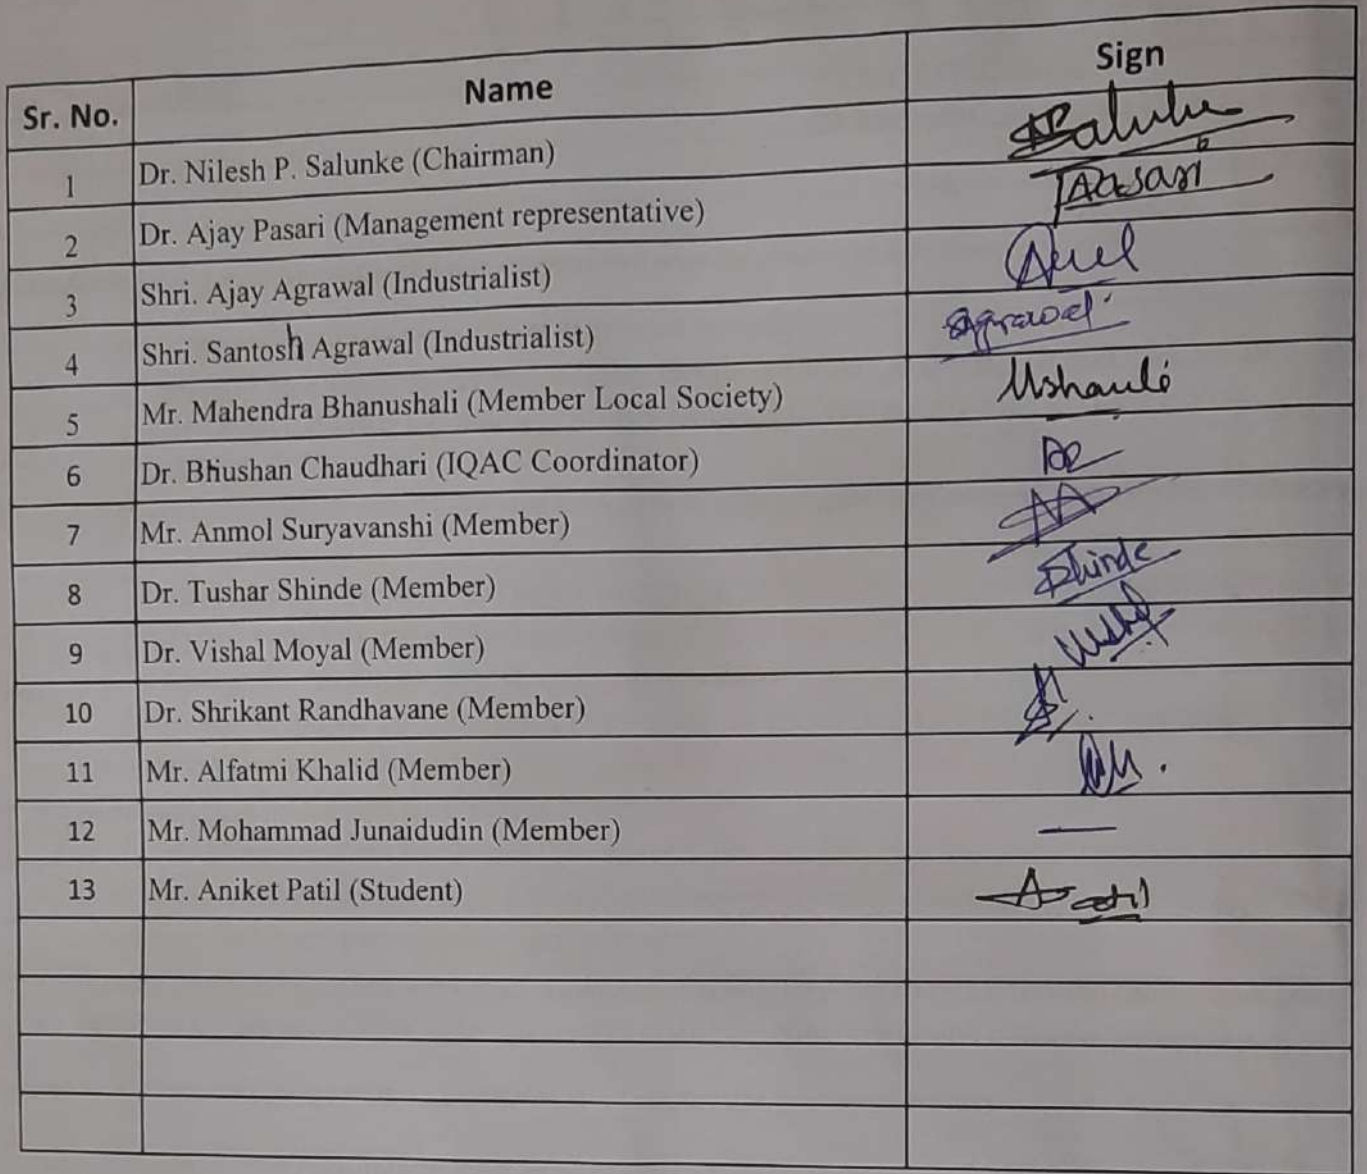 Sr. No. Name Sign
1 Dr. Nilesh P. Salunke (Chairman) Salunke
2 Dr. Ajay Pasari (Management representative) Pasari
3 Shri. Ajay Agrawal (Industrialist)
4 Shri. Santosh Agrawal (Industrialist) Agrawal
5 Mr. Mahendra Bhanushali (Member Local Society)
6 Dr. Bhushan Chaudhari (IQAC Coordinator)
7 Mr. Anmol Suryavanshi (Member)
8 Dr. Tushar Shinde (Member) Shinde
9 Dr. Vishal Moyal (Member)
10 Dr. Shrikant Randhavane (Member)
11 Mr. Alfatmi Khalid (Member)
12 Mr. Mohammad Junaidudin (Member) —
13 Mr. Aniket Patil (Student)